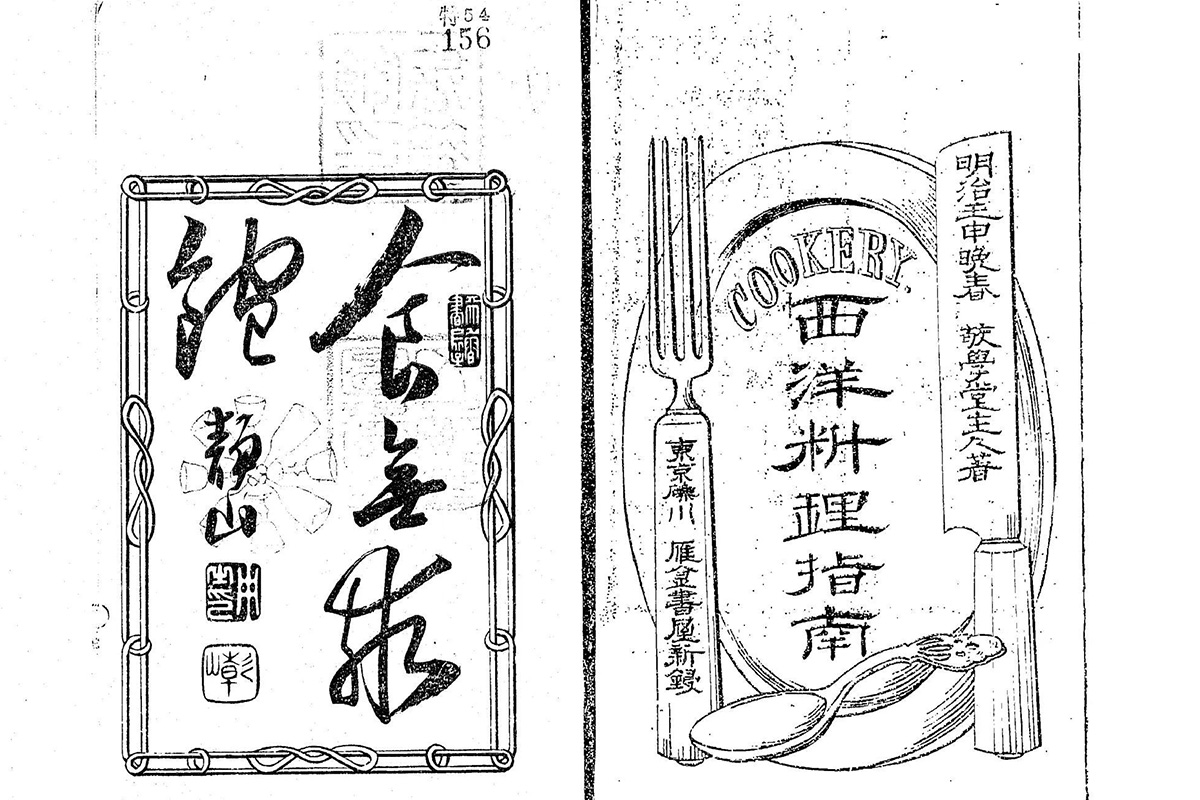 明治壬申晚春 敬學堂主人著
COOKERY.
西洋料理指南
東京礫川 雁金書屋新鋟
特54
156
食無求
飽
靜山